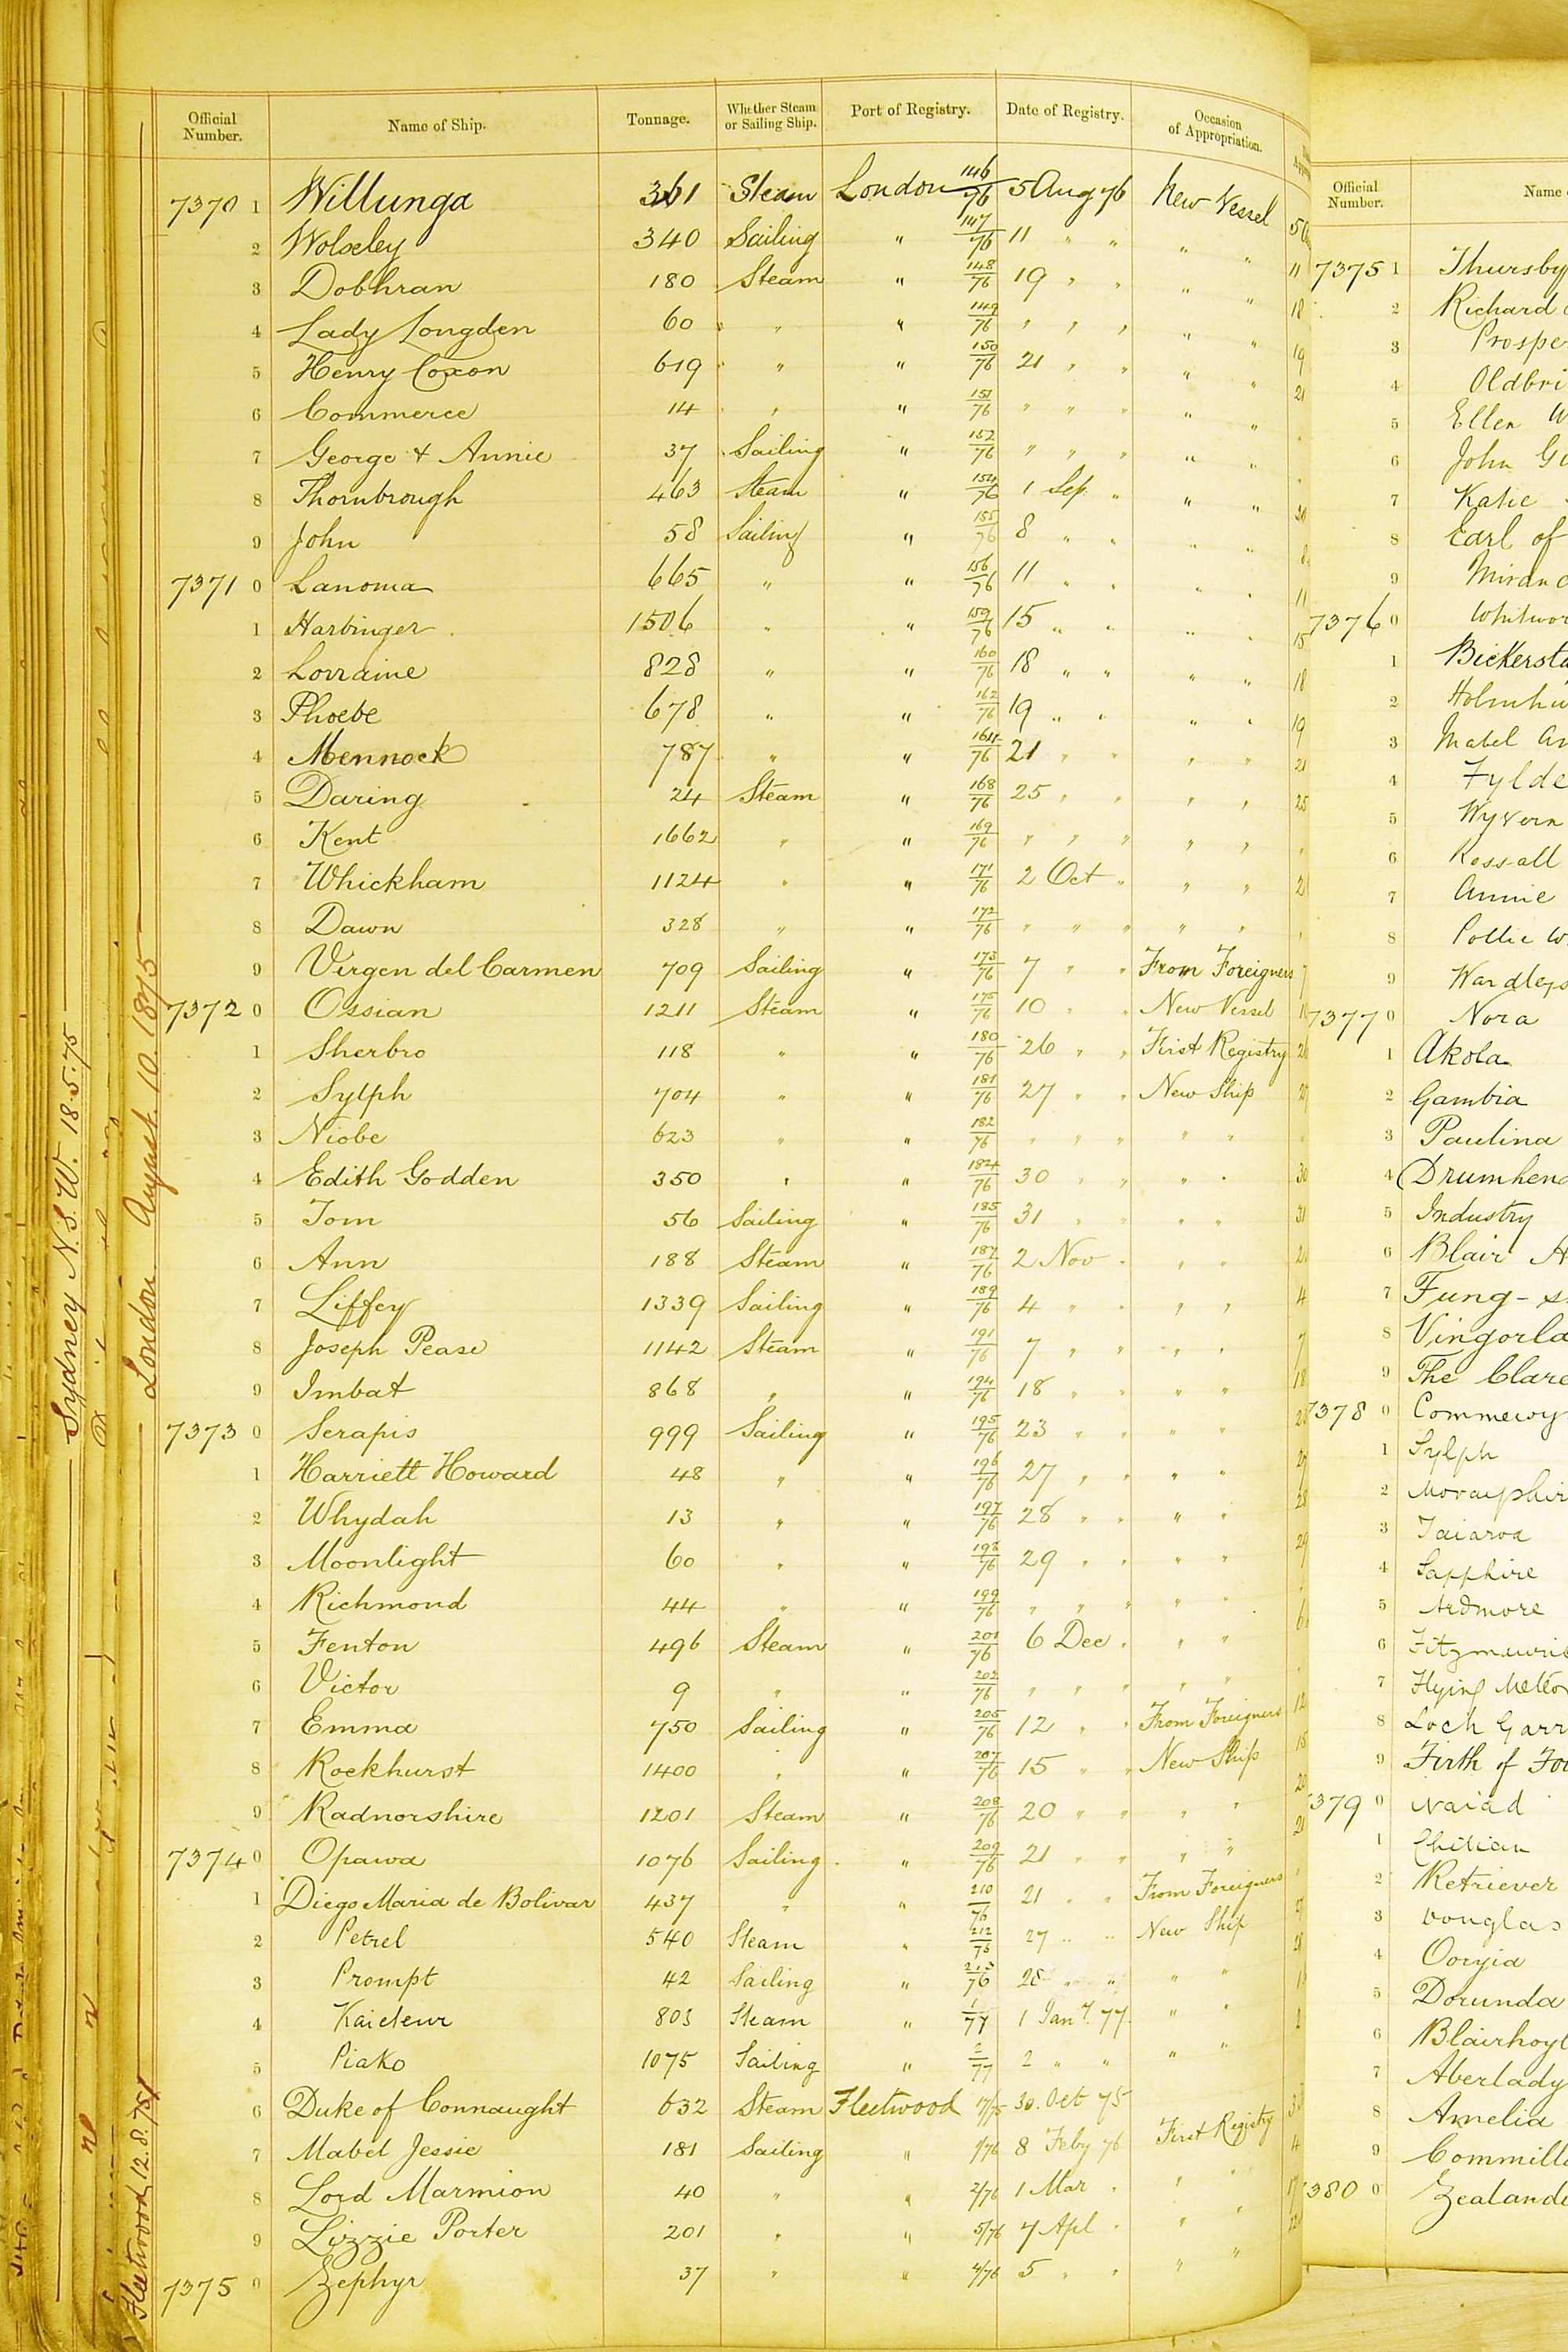 Official Number. Name of Ship. Tonnage. Whether Steam or Sailing Ship. Port of Registry. Date of Registry. Occasion of Appropriation.
7370 1 Willunga 361 Steam London 146/76 5 Aug 76 New Vessel
2 Wolseley 340 Sailing " 147/76 11 " " " "
3 Dobhran 180 Steam " 148/76 19 " " " "
4 Lady Longden 60 " " 149/76 " " " " "
5 Henry Coxon 619 " " 150/76 21 " " " "
6 Commerce 14 " " 151/76 " " " " "
7 George & Annie 37 Sailing " 152/76 " " " " "
8 Thornbrough 463 Steam " 154/76 1 Sep " " "
9 John 58 Sailing " 155/76 8 " " " "
7371 0 Lanoma 665 " " 156/76 11 " " " "
1 Harbinger 1506 " " 159/76 15 " " " "
2 Lorraine 828 " " 160/76 18 " " " "
3 Phoebe 678 " " 162/76 19 " " " "
4 Mennock 787 " " 164/76 21 " " " "
5 Daring 24 Steam " 168/76 25 " " " "
6 Kent 1662 " " 169/76 " " " " "
7 Whickham 1124 " " 171/76 2 Oct " " "
8 Dawn 328 " " 172/76 " " " " "
9 Virgen del Carmen 709 Sailing " 173/76 7 " " From Foreigners
7372 0 Ossian 1211 Steam " 175/76 10 " " New Vessel
1 Sherbro 118 " " 180/76 26 " " First Registry
2 Sylph 704 " " 181/76 27 " " New Ship
3 Niobe 623 " " 182/76 " " " " "
4 Edith Godden 350 " " 184/76 30 " " " "
5 Tom 56 Sailing " 185/76 31 " " " "
6 Ann 188 Steam " 187/76 2 Nov " " "
7 Liffey 1339 Sailing " 189/76 4 " " " "
8 Joseph Pease 1142 Steam " 191/76 7 " " " "
9 Imbat 868 " " 194/76 18 " " " "
7373 0 Serapis 999 Sailing " 195/76 23 " " " "
1 Harriett Howard 48 " " 196/76 27 " " " "
2 Whydah 13 " " 197/76 28 " " " "
3 Moonlight 60 " " 198/76 29 " " " "
4 Richmond 44 " " 199/76 " " " " "
5 Fenton 496 Steam " 201/76 6 Dec " " "
6 Victor 9 " " 202/76 " " " " "
7 Emma 750 Sailing " 205/76 12 " " From Foreigners
8 Rockhurst 1400 " " 207/76 15 " " New Ship
9 Radnorshire 1201 Steam " 208/76 20 " " " "
7374 0 Opawa 1076 Sailing " 209/76 21 " " " "
1 Diego Maria de Bolivar 437 " " 210/76 21 " " From Foreigners
2 Petrel 540 Steam " 212/76 27 " " New Ship
3 Prompt 42 Sailing " 213/76 28 " " " "
4 Kaieteur 803 Steam " 1/77 1 Jany. 77 " "
5 Piako 1075 Sailing " 2/77 2 " " " "
6 Duke of Connaught 632 Steam Fleetwood 17/75 30. Oct 75
7 Mabel Jessie 181 Sailing " 1/76 8 Feby 76 First Registry
8 Lord Marmion 40 " " 2/76 1 Mar " " "
9 Lizzie Porter 201 " " 5/76 7 Apl " " "
7375 0 Zephyr 37 " " 4/76 5 " " " "
Sydney N.S.W. 18.5.75
London August. 10. 1875
Fleetwood 12.8.75
Official Number. Name
7375 1 Thursby
2 Richard
3 Prospe
4 Oldbri
5 Ellen W
6 John Gi
7 Katie
8 Earl of
9 Miranc
7376 0 Whitwor
1 Bickersta
2 Holmhu
3 Mabel An
4 Fylde
5 Wyvern
6 Rossall
7 Annie
8 Pollie W
9 Wardleys
7377 0 Nora
1 Akola
2 Gambia
3 Paulina
4 Drumhend
5 Industry
6 Blair A
7 Fung-s
8 Vingorla
9 The Clare
7378 0 Commewy
1 Sylph
2 Morayshir
3 Taiaroa
4 Sapphire
5 Ardmore
6 Fitzmauric
7 Flying Meteor
8 Loch Garr
9 Firth of For
379 0 Naiad
1 Chilian
2 Retriever
3 Douglas
4 Ooryia
5 Dorunda
6 Blairhoyl
7 Aberlady
8 Amelia
9 Commilla
380 0 Zealande